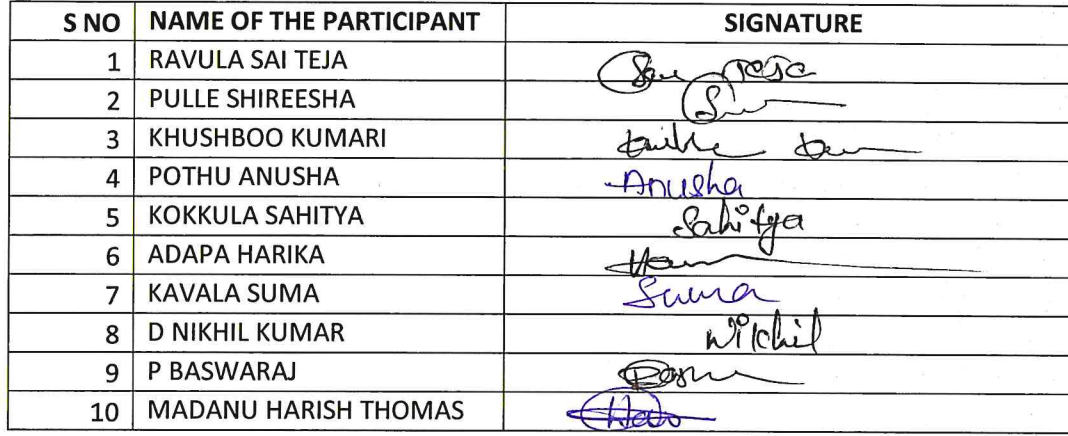 S NO NAME OF THE PARTICIPANT SIGNATURE
1 RAVULA SAI TEJA Sai Teja
2 PULLE SHIREESHA
3 KHUSHBOO KUMARI
4 POTHU ANUSHA Anusha
5 KOKKULA SAHITYA Sahitya
6 ADAPA HARIKA
7 KAVALA SUMA Suma
8 D NIKHIL KUMAR Nikhil
9 P BASWARAJ
10 MADANU HARISH THOMAS